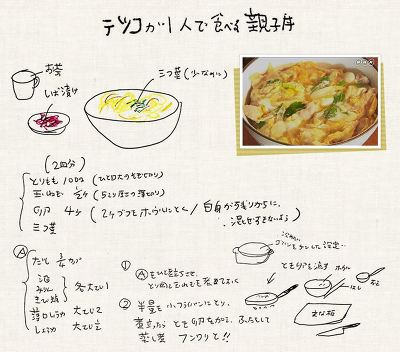 テツコが1人で食べる親子丼
お茶
しば漬け
三つ葉(少なめに)
(2回分)
とりもも 100g (ひと口大のそぎ切り)
玉ねぎ 1/2ヶ (5ミリ厚の薄切り)
卵 4ヶ (2ヶづつをボウルにとく/白身がちぎりがちに、
混ぜすぎないよう)
三つ葉
Ⓐ
だし 3/4カップ
酒
みりん
きび糖
各大さじ1
薄口しょうゆ 大さじ2
しょうゆ 大さじ1/2
① Ⓐをひと煮立ちさせて、
とり肉と玉ねぎを煮ておく
② 半量を小フライパンにとり、
煮立ったら とき卵を加え、ふたをして
蒸し煮 フンワリと!!
とき卵を流す
ボウル
はし